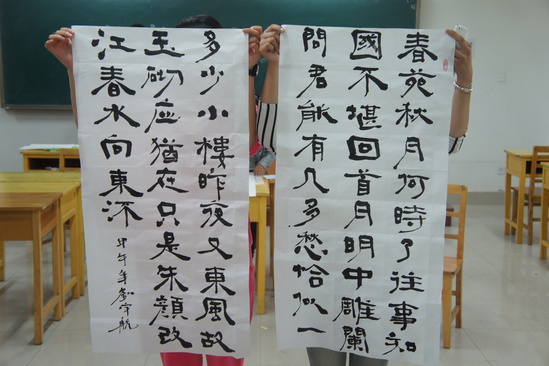 春苑秋月何時了往事知
國不堪回首月明中雕闌
問君能有几多愁恰似一
多少小樓昨夜又東風故
玉砌应猶在只是朱顏改
江春水向東流
甲午年劉宇航